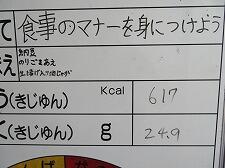 て 食事のマナーを身につけよう
え 納豆
のりごまあえ
生揚げ入り肉じゃが
う(きじゅん) Kcal 617
く(きじゅん) g 24.9